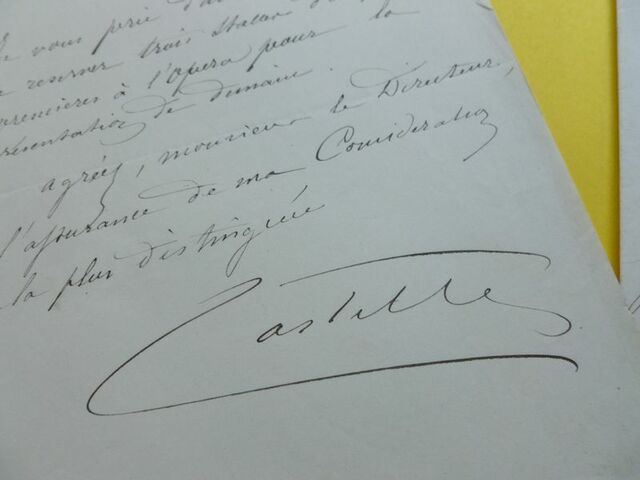 vous prie d'a
reserver trois stalles de
premières à l'opéra pour la
résentation de demain.
agréez, monsieur le Directeur,
l'assurance de ma Considération
la plus distinguée
Castelle